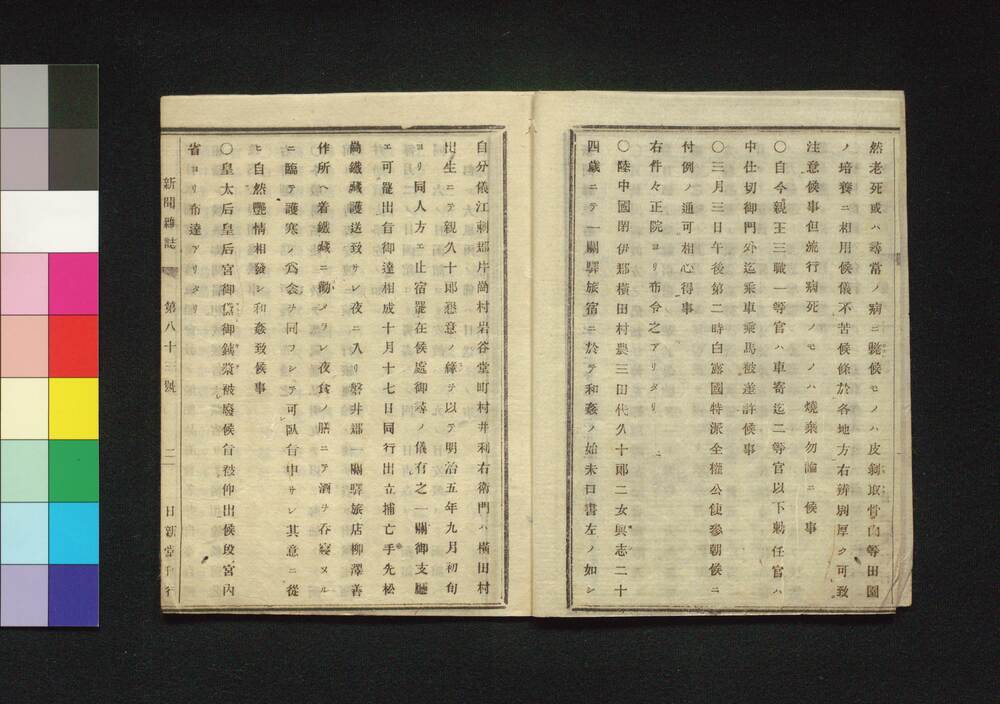 然老死或ハ尋常ノ病ニ斃候モノハ皮剝取骨肉等田園
ノ培養ニ相用候儀不苦候條於各地方右辨別厚ク可致
注意候事但流行病死ノモノハ燒棄勿論ニ候事
〇自今親王三職一等官ハ車寄迄二等官以下勅任官ハ
中仕切御門外迄乘車乘馬被差許候事
〇三月三日午後第二時白露國特派全權公使參朝候ニ
付例ノ通可相心得事
右件々正院ヨリ布令之アリタリ
〇陸中國閉伊郡橫田村農三田代久十郎二女與志二十
四歲ニテ一關驛旅宿ニ於テ和姦ノ始末口書左ノ如シ
自分儀江刺郡片岡村岩谷堂町村井利右衛門ハ橫田村
出生ニテ親久十郎懇意ノ緣ヲ以テ明治五年九月初旬
ヨリ同人方エ止宿罷在候處御尋ノ儀有之一關御支廳
エ可罷出旨御達相成十月十七日同行出立捕亡手先松
嶋鐵藏護送致サレ夜ニ入リ磐井郡一關驛旅店柳澤善
作所ヘ着鐵藏ニ勸メラレ夜食ノ膳ニテ酒ヲ呑寢ヌル
ニ臨テ護寒ノ爲衾ヲ同フシテ可臥旨申サレ其意ニ從
ヒ自然艷情相發シ和姦致候事
〇皇太后皇后宮御黛御鐵漿被廢候旨被仰出候段宮內
省ヨリ布達アリタリ
新聞雜誌 第八十三號 二 日新堂刊行